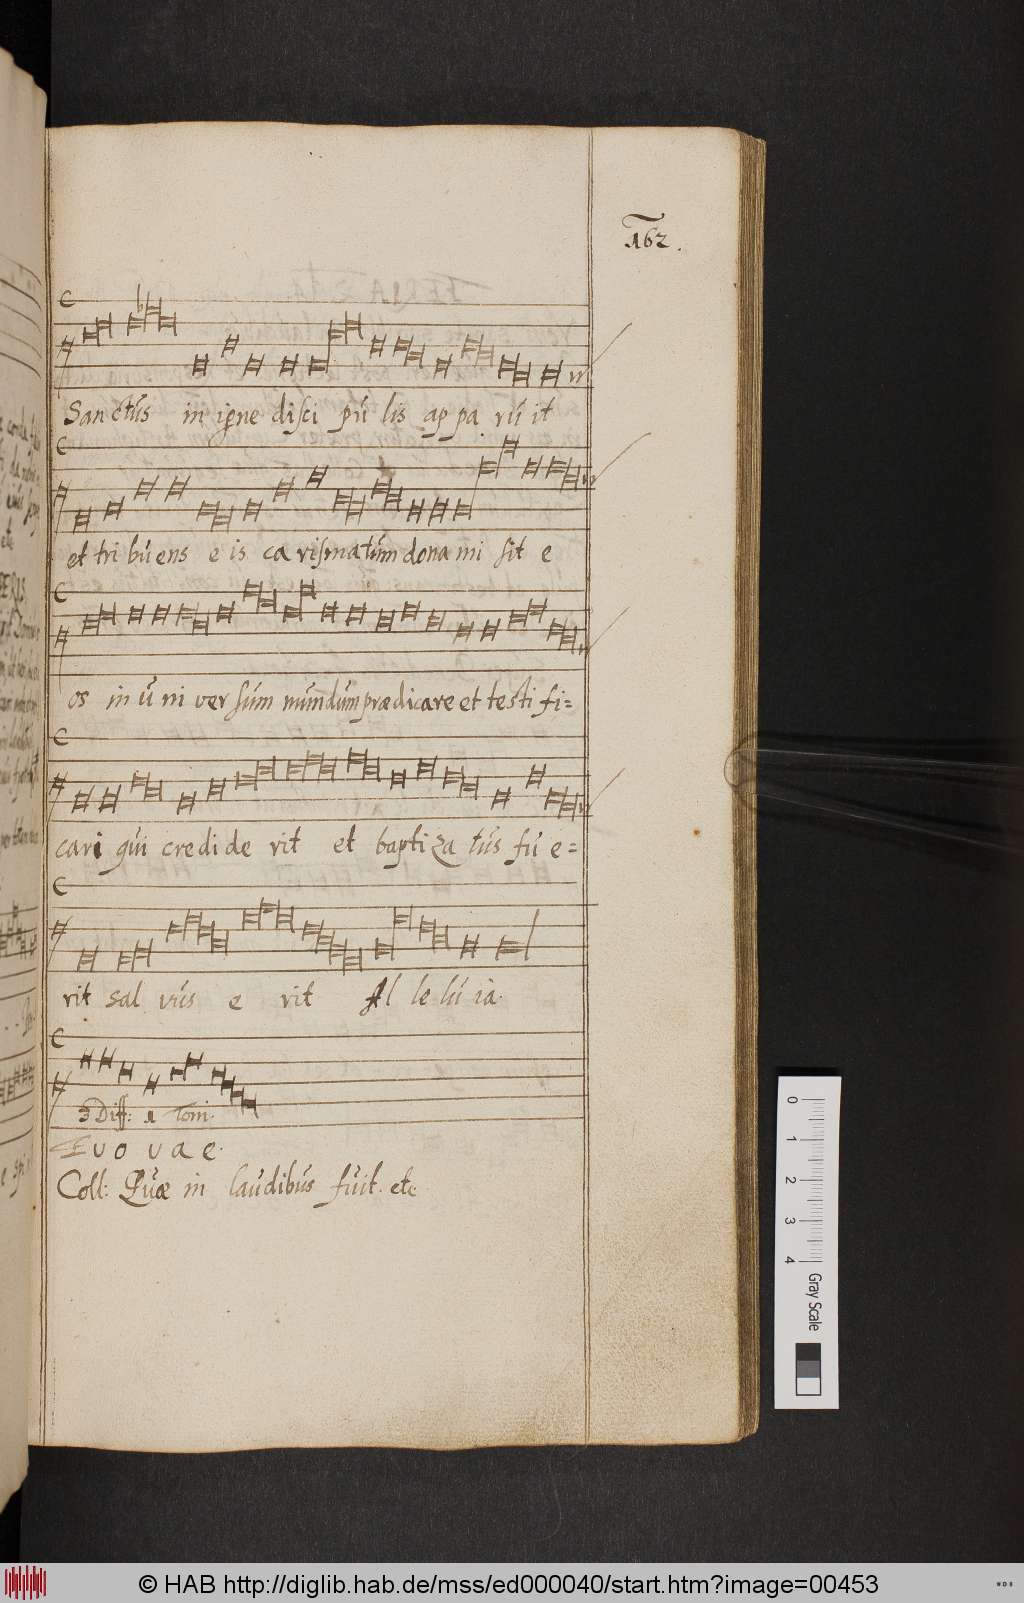 162.
Sanctus in igne disci pu lis ap pa ru it
et tri buens e is ca rismatum dona mi sit e
os in u ni ver sum mundum praedicare et testi fi=
cari qui credi de rit et bapti za tus fu e=
rit sal vus e rit Al le lu ia.
3 Diff: 1 Toni.
Euo vae.
Coll: Quae in laudibus fuit. etc
0 1 2 3 4 Gray Scale
© HAB http://diglib.hab.de/mss/ed000040/start.htm?image=00453